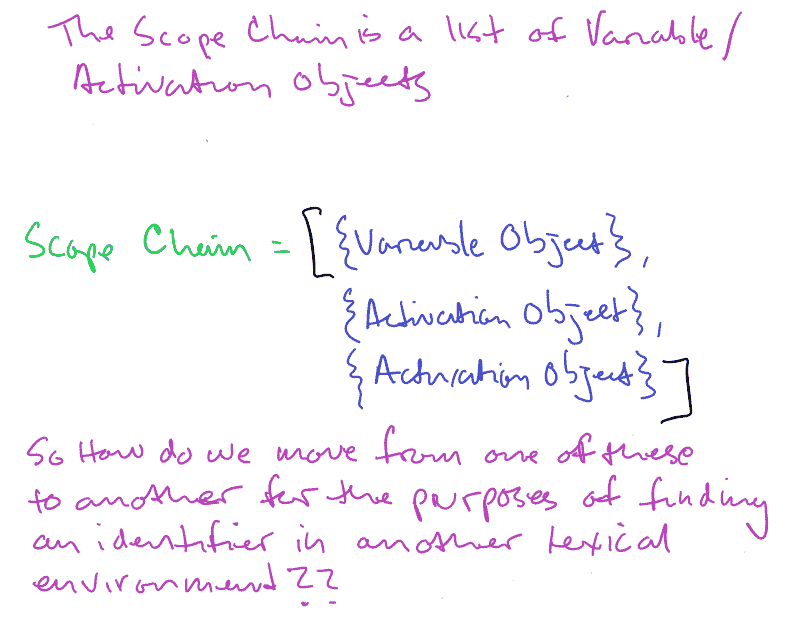 The Scope Chain is a list of Variable/
Activation Objects
Scope Chain = [{Variable Object},
{Activation Object},
{Activation Object}]
So How do we move from one of these
to another for the purposes of finding
an identifier in another Lexical
environment??